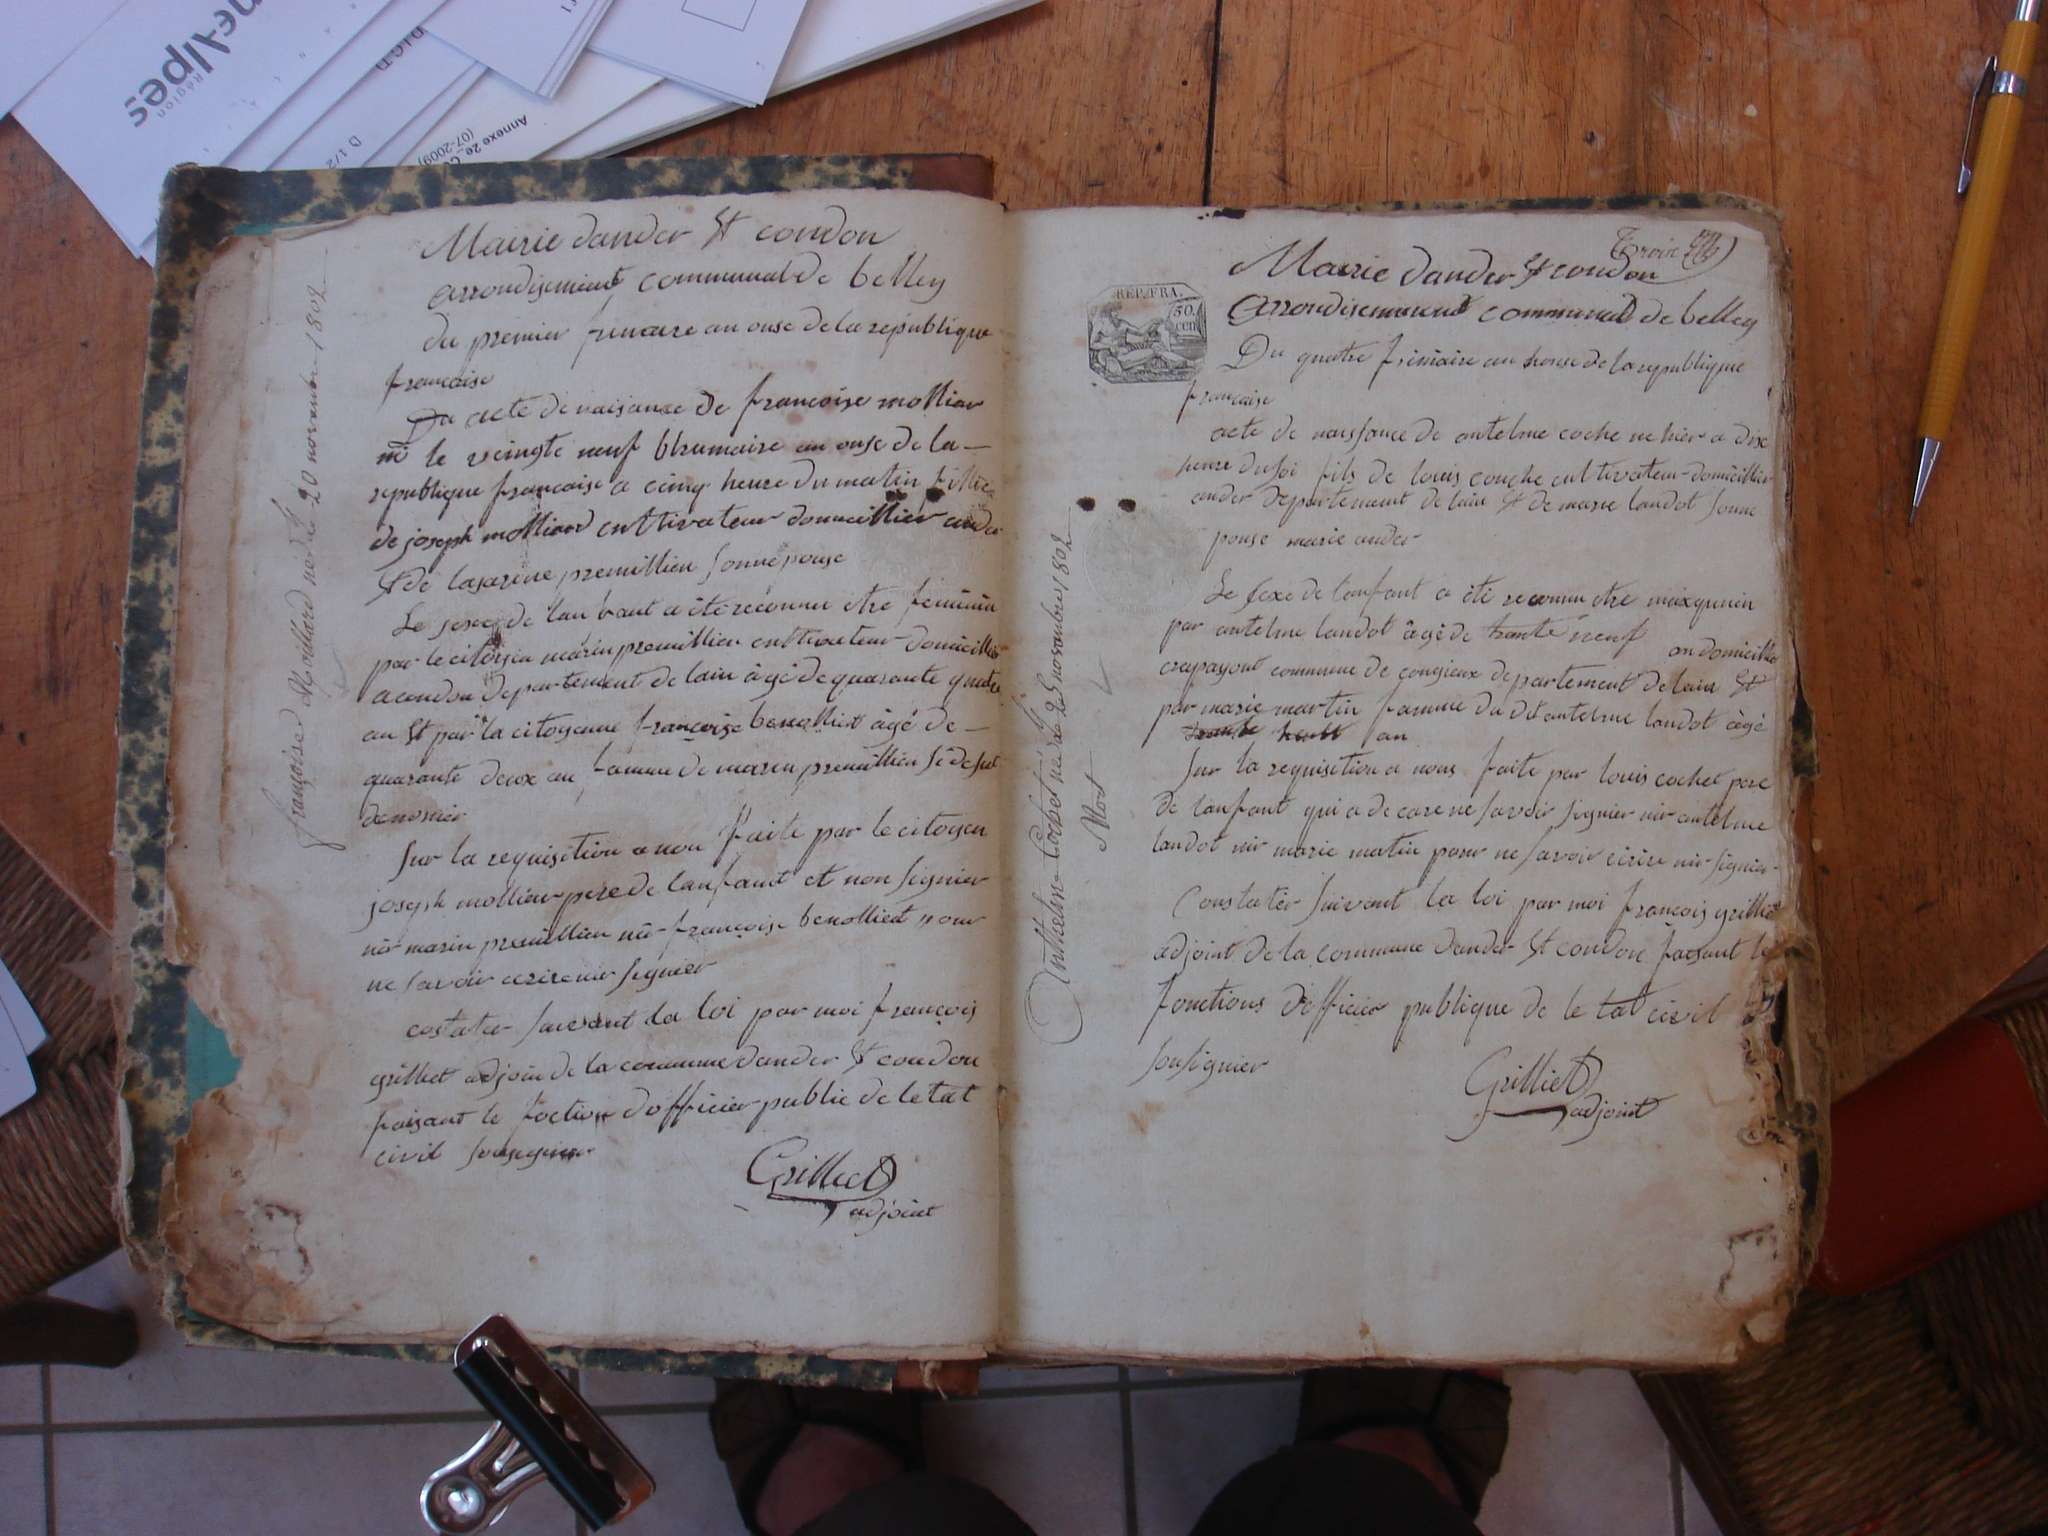 Région
D 1/2
Annexe 2e
(07-2009)
françoise Molliard née le 20 novembre 1802
Mairie dander St condon
arrondisement communal de belley
du premier frimaire an onse de la republique
francaise
Du acte de naisance de francoise molliar
né le veingte neuf bhrumaire an onse de la
republique francaise a cinq heure du matin fillie
de joseph molliard cultivateur domicillier ander
St de lasarine premillieu sonnepouse
Le sexe de lanfant a été reconnu etre feminin
par le citoyen marin premillieu cultivateur domicillier
a condon departement de lain âgé de quarante quatre
an St par la citoyenne françoise benolliet âgé de
quarante deux an famme de marin premillieu
denomer
Sur la requisition a nou faite par le citoyen
joseph mollieu pere de lanfant et non signier
nir marin premillieu nir françoise benolliet pour
ne savoir ecrire nir signier
costater suivant la loi par moi françois
grilliet adjoin de la commune dander St condon
faisant le foction dofficier public de letat
civil
Grilliet
adjoint
Troix
REP. FRA.
50.
cen
Anthelme Cochet né le 25 novembre 1802
Mort
Mairie dander St condon
arrondisement communal de belley
Du quatre frimaire an honse de la republique
francaise
acte de naissance de antelme coche ne hier a dix
heure du soi fils de louis couche cultivateur domicillier
ander departement de lain St de marie landot sonne
pouse marie ander
Le sexe de lanfant a été reconnu etre maxquinin
par antelme landot âgé de trante neuf an domicillie
creypayout commune de congieux departement de lain St
par marie martin famme du dit antelme landot âgé
trante huit an
Sur la requisition a nous faite par louis cochet pere
de lanfant qui a de care ne savoir signier nir antelme
landot nir marie matin pour ne savoir ecrire nir signier
Constater suivant la loi par moi françois grilliet
adjoint de la commune dander St condon faesant le
fonctions dofficier publique de le tat civil
sousignier
Grilliet
adjoint